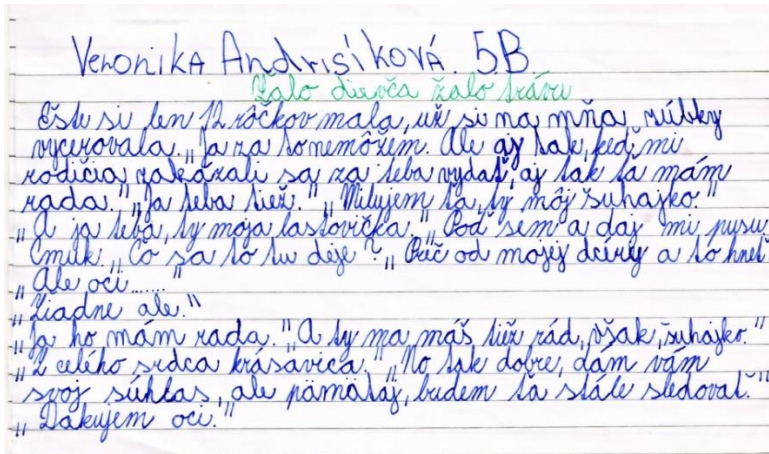 Veronika Andrisíková 5B
Žalo dievča žalo trávu
Ešte si len 12 rôčkov mala, už si na mňa zúbky
vycerovala. "Ja za to nemôžem. Ale aj tak, keď mi
rodičia zakázali sa za teba vydať, aj tak ťa mám
rada." "Ja teba tiež." "Milujem ťa, ty môj šuhajko."
"A ja teba, ty moja lastovička." "Poď sem a daj mi pusu.
Cmuk. "Čo sa to tu deje?" "Preč od mojej dcéry a to hneď."
"Ale oci......."
"Žiadne ale."
"Ja ho mám rada." "A ty ma máš tiež rád, však, šuhajko."
"Z celého srdca krásavica." "No tak dobre, dám vám
svoj súhlas, ale pämätaj, budem ťa stále sledovať."
"Ďakujem oci."